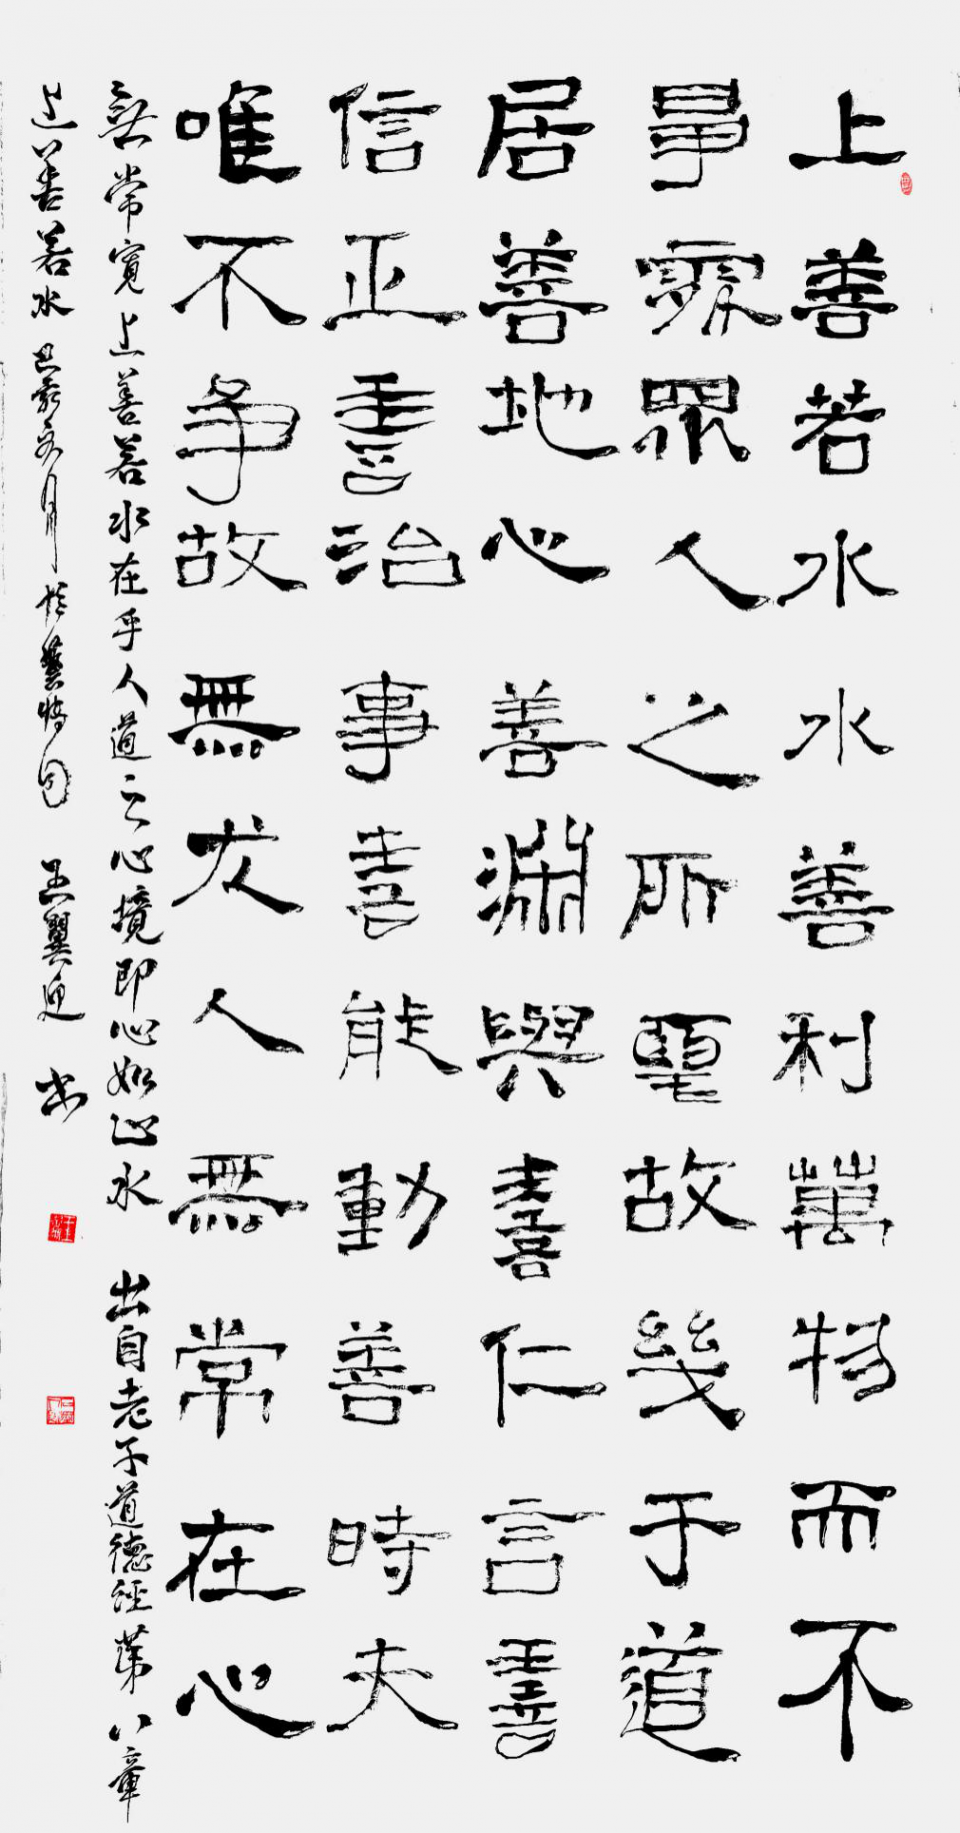 上善若水水善利萬物而不
爭處眾人之所惡故幾于道
居善地心善淵與善仁言善
信正善治事善能動善時夫
唯不争故無尤人無常在心
無常寬上善若水在乎人道之心境即心如止水 出自老子道德經第八章
上善若水 己亥 月於藝 王翼 书